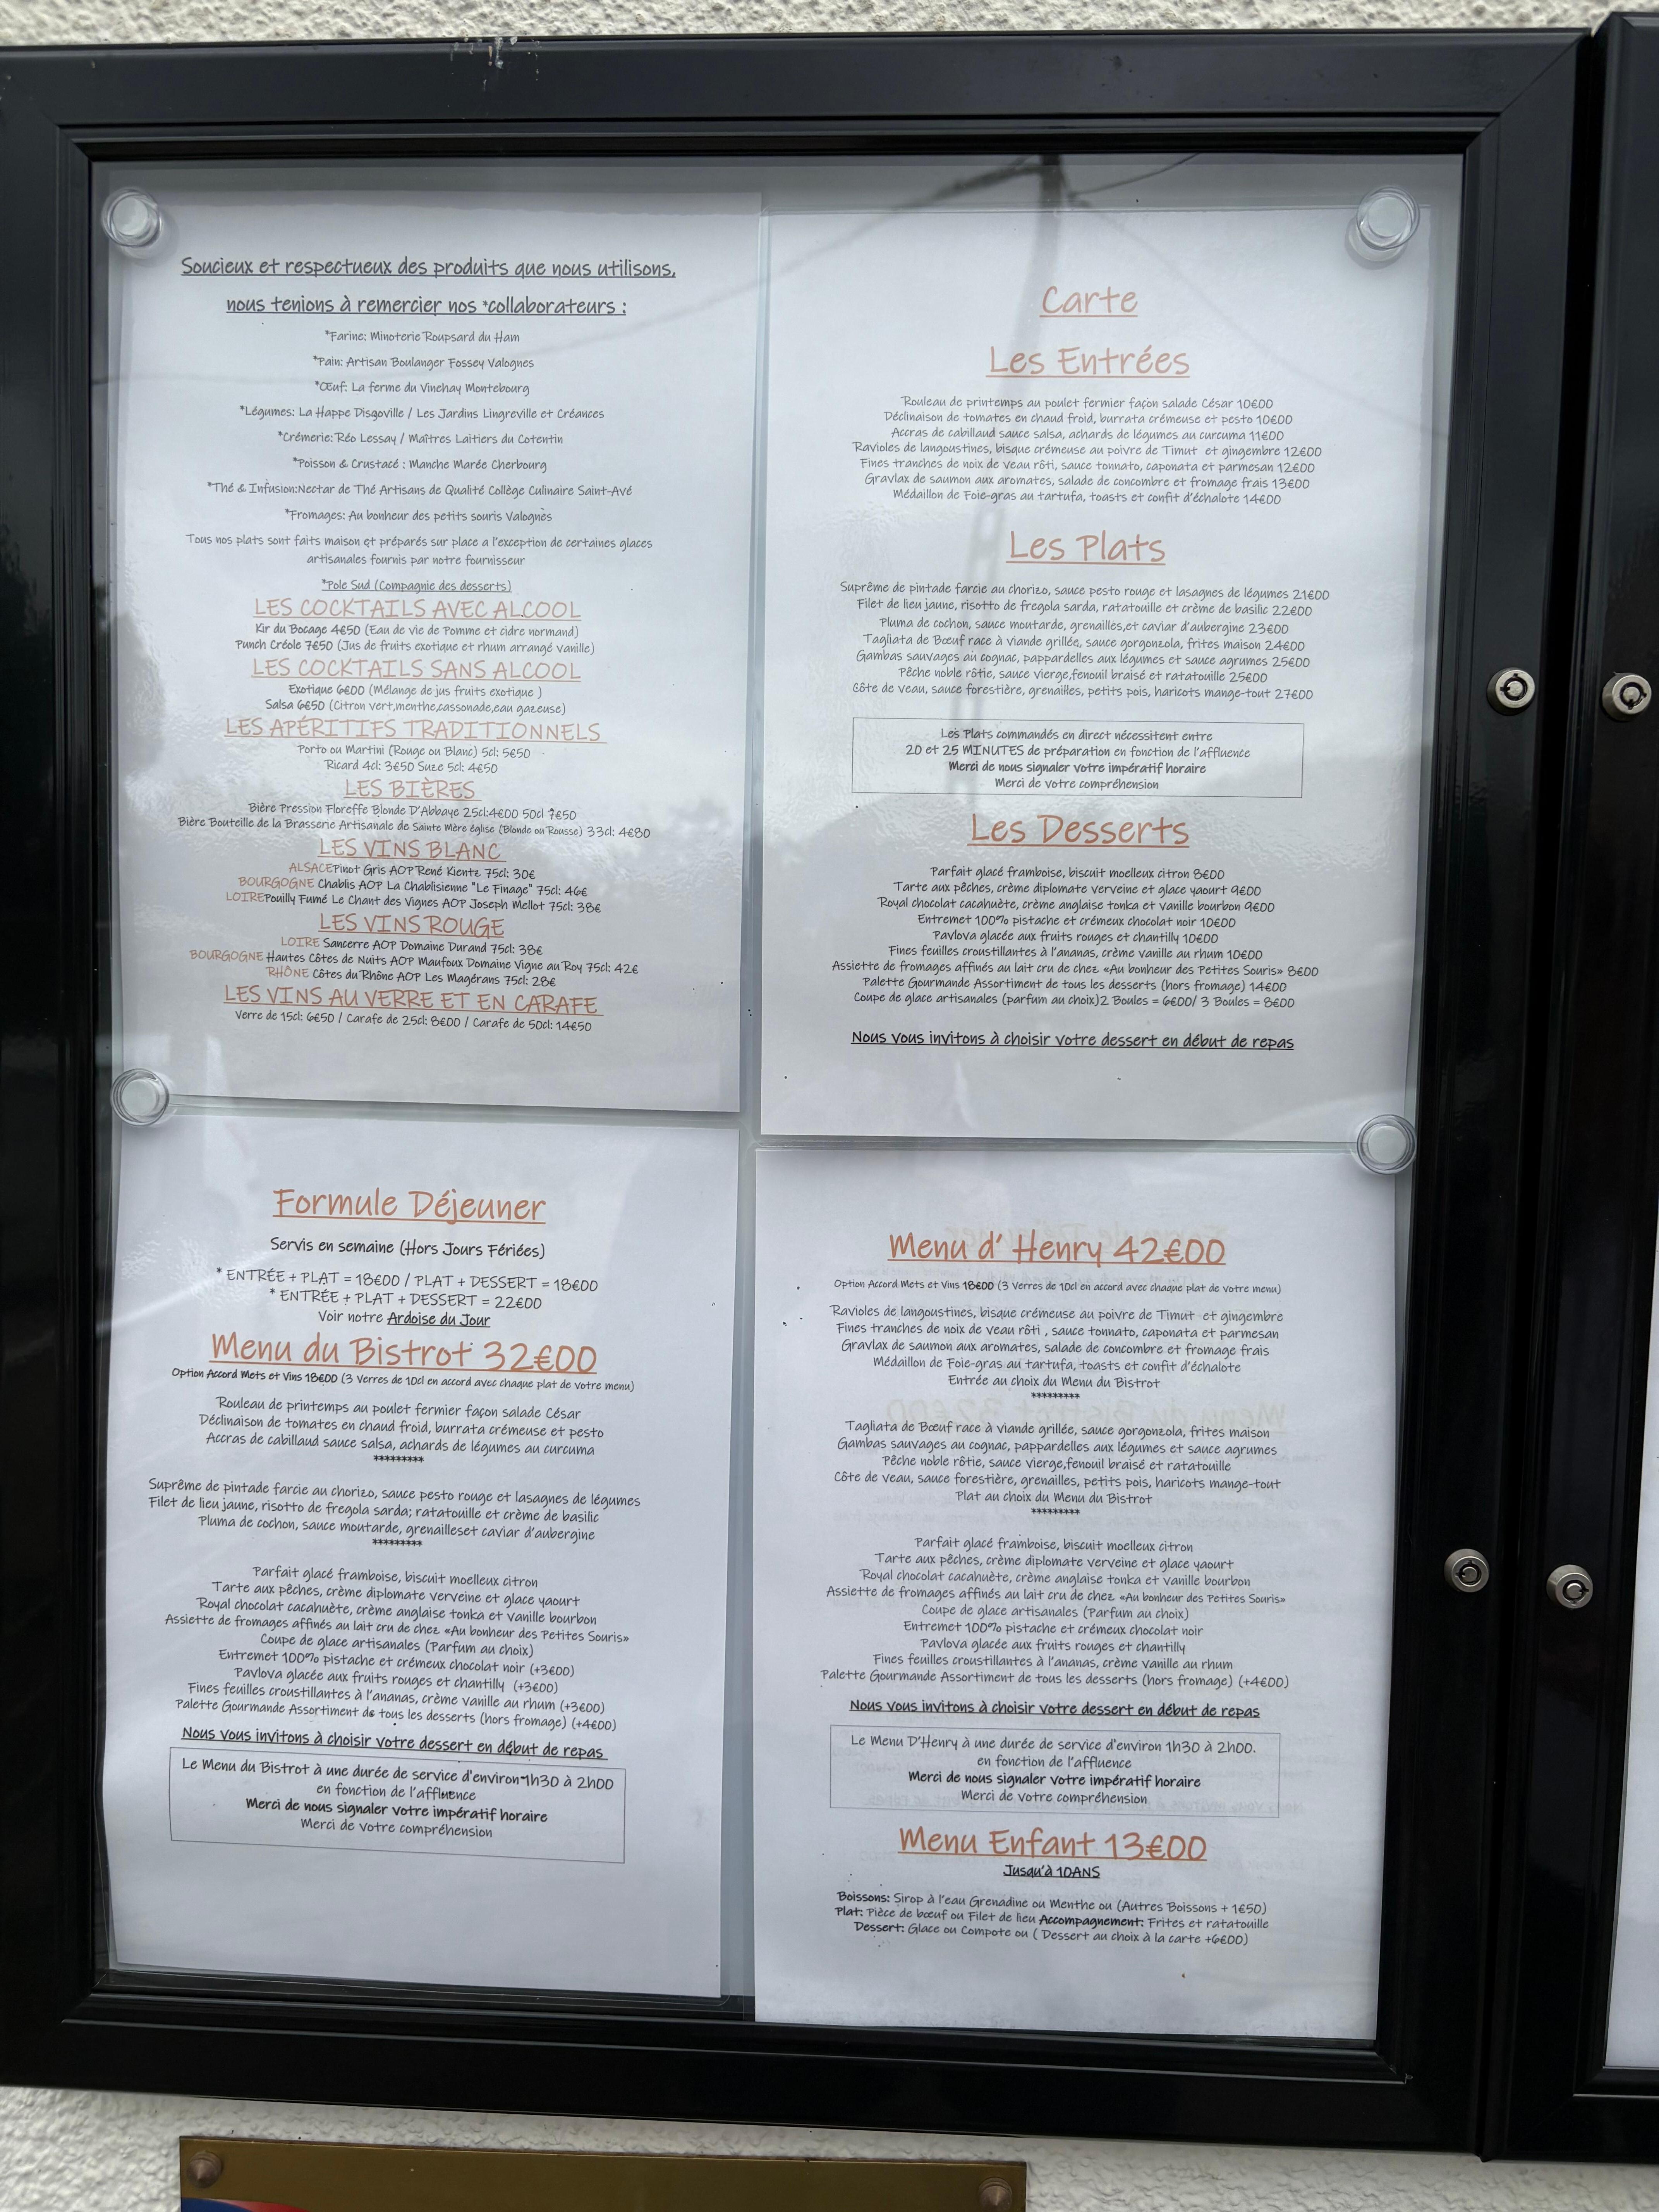 Soucieux et respectueux des produits que nous utilisons,
nous tenions à remercier nos *collaborateurs :
*Farine: Minoterie Roupsard du Ham
*Pain: Artisan Boulanger Fossey Valognes
*Œuf: La ferme du Vinehay Montebourg
*Légumes: La Happe Disgoville / Les Jardins Lingreville et Créances
*Crémerie: Réo Lessay / Maîtres Laitiers du Cotentin
*Poisson & Crustacé : Manche Marée Cherbourg
*Thé & Infusion:Nectar de Thé Artisans de Qualité Collège Culinaire Saint-Avé
*Fromages: Au bonheur des petits souris Valognes
Tous nos plats sont faits maison et préparés sur place a l'exception de certaines glaces
artisanales fournis par notre fournisseur
*Pole Sud (Compagnie des desserts)
LES COCKTAILS AVEC ALCOOL
Kir du Bocage 4€50 (Eau de vie de Pomme et cidre normand)
Punch Créole 7€50 (Jus de fruits exotique et rhum arrangé vanille)
LES COCKTAILS SANS ALCOOL
Exotique 6€00 (Mélange de jus fruits exotique )
Salsa 6€50 (Citron vert,menthe,cassonade,eau gazeuse)
LES APÉRITIFS TRADITIONNELS
Porto ou Martini (Rouge ou Blanc) 5cl: 5€50
Ricard 4cl: 3€50 Suze 5cl: 4€50
LES BIÈRES
Bière Pression Floreffe Blonde D'Abbaye 25cl:4€00 50cl 7€50
Bière Bouteille de la Brasserie Artisanale de Sainte Mère église (Blonde ou Rousse) 33cl: 4€80
LES VINS BLANC
ALSACEPinot Gris AOP René Kientz 75cl: 30€
BOURGOGNE Chablis AOP La Chablisienne "Le Finage" 75cl: 46€
LOIREPouilly Fumé Le Chant des Vignes AOP Joseph Mellot 75cl: 38€
LES VINS ROUGE
LOIRE Sancerre AOP Domaine Durand 75cl: 38€
BOURGOGNE Hautes Côtes de Nuits AOP Maufoux Domaine Vigne au Roy 75cl: 42€
RHÔNE Côtes du Rhône AOP Les Magérans 75cl: 28€
LES VINS AU VERRE ET EN CARAFE
Verre de 15cl: 6€50 / Carafe de 25cl: 8€00 / Carafe de 50cl: 14€50
Carte
Les Entrées
Rouleau de printemps au poulet fermier façon salade César 10€00
Déclinaison de tomates en chaud froid, burrata crémeuse et pesto 10€00
Accras de cabillaud sauce salsa, achards de légumes au curcuma 11€00
Ravioles de langoustines, bisque crémeuse au poivre de Timut et gingembre 12€00
Fines tranches de noix de veau rôti, sauce tonnato, caponata et parmesan 12€00
Gravlax de saumon aux aromates, salade de concombre et fromage frais 13€00
Médaillon de Foie-gras au tartufa, toasts et confit d'échalote 14€00
Les Plats
Suprême de pintade farcie au chorizo, sauce pesto rouge et lasagnes de légumes 21€00
Filet de lieu jaune, risotto de fregola sarda, ratatouille et crème de basilic 22€00
Pluma de cochon, sauce moutarde, grenailles,et caviar d'aubergine 23€00
Tagliata de Bœuf race à viande grillée, sauce gorgonzola, frites maison 24€00
Gambas sauvages au cognac, pappardelles aux légumes et sauce agrumes 25€00
Pêche noble rôtie, sauce vierge,fenouil braisé et ratatouille 25€00
Côte de veau, sauce forestière, grenailles, petits pois, haricots mange-tout 27€00
Les Plats commandés en direct nécessitent entre
20 et 25 MINUTES de préparation en fonction de l'affluence
Merci de nous signaler votre impératif horaire
Merci de votre compréhension
Les Desserts
Parfait glacé framboise, biscuit moelleux citron 8€00
Tarte aux pêches, crème diplomate verveine et glace yaourt 9€00
Royal chocolat cacahuète, crème anglaise tonka et vanille bourbon 9€00
Entremet 100% pistache et crémeux chocolat noir 10€00
Pavlova glacée aux fruits rouges et chantilly 10€00
Fines feuilles croustillantes à l'ananas, crème vanille au rhum 10€00
Assiette de fromages affinés au lait cru de chez «Au bonheur des Petites Souris» 8€00
Palette Gourmande Assortiment de tous les desserts (hors fromage) 14€00
Coupe de glace artisanales (parfum au choix)2 Boules = 6€00/ 3 Boules = 8€00
Nous vous invitons à choisir votre dessert en début de repas
Formule Déjeuner
Servis en semaine (Hors Jours Fériées)
* ENTRÉE + PLAT = 18€00 / PLAT + DESSERT = 18€00
* ENTRÉE + PLAT + DESSERT = 22€00
Voir notre Ardoise du Jour
Menu du Bistrot 32€00
Option Accord Mets et Vins 18€00 (3 verres de 10cl en accord avec chaque plat de votre menu)
Rouleau de printemps au poulet fermier façon salade César
Déclinaison de tomates en chaud froid, burrata crémeuse et pesto
Accras de cabillaud sauce salsa, achards de légumes au curcuma
*********
Suprême de pintade farcie au chorizo, sauce pesto rouge et lasagnes de légumes
Filet de lieu jaune, risotto de fregola sarda; ratatouille et crème de basilic
Pluma de cochon, sauce moutarde, grenailleset caviar d'aubergine
*********
Parfait glacé framboise, biscuit moelleux citron
Tarte aux pêches, crème diplomate verveine et glace yaourt
Royal chocolat cacahuète, crème anglaise tonka et vanille bourbon
Assiette de fromages affinés au lait cru de chez «Au bonheur des Petites Souris»
Coupe de glace artisanales (Parfum au choix)
Entremet 100% pistache et crémeux chocolat noir (+3€00)
Pavlova glacée aux fruits rouges et chantilly (+3€00)
Fines feuilles croustillantes à l'ananas, crème vanille au rhum (+3€00)
Palette Gourmande Assortiment de tous les desserts (hors fromage) (+4€00)
Nous vous invitons à choisir votre dessert en début de repas
Le Menu du Bistrot à une durée de service d'environ 1h30 à 2h00
en fonction de l'affluence
Merci de nous signaler votre impératif horaire
Merci de votre compréhension
Menu d' Henry 42€00
Option Accord Mets et Vins 18€00 (3 verres de 10cl en accord avec chaque plat de votre menu)
Ravioles de langoustines, bisque crémeuse au poivre de Timut et gingembre
Fines tranches de noix de veau rôti , sauce tonnato, caponata et parmesan
Gravlax de saumon aux aromates, salade de concombre et fromage frais
Médaillon de Foie-gras au tartufa, toasts et confit d'échalote
Entrée au choix du Menu du Bistrot
*********
Tagliata de Bœuf race à viande grillée, sauce gorgonzola, frites maison
Gambas sauvages au cognac, pappardelles aux légumes et sauce agrumes
Pêche noble rôtie, sauce vierge,fenouil braisé et ratatouille
Côte de veau, sauce forestière, grenailles, petits pois, haricots mange-tout
Plat au choix du Menu du Bistrot
*********
Parfait glacé framboise, biscuit moelleux citron
Tarte aux pêches, crème diplomate verveine et glace yaourt
Royal chocolat cacahuète, crème anglaise tonka et vanille bourbon
Assiette de fromages affinés au lait cru de chez «Au bonheur des Petites Souris»
Coupe de glace artisanales (Parfum au choix)
Entremet 100% pistache et crémeux chocolat noir
Pavlova glacée aux fruits rouges et chantilly
Fines feuilles croustillantes à l'ananas, crème vanille au rhum
Palette Gourmande Assortiment de tous les desserts (hors fromage) (+4€00)
Nous vous invitons à choisir votre dessert en début de repas
Le Menu D'Henry à une durée de service d'environ 1h30 à 2h00.
en fonction de l'affluence
Merci de nous signaler votre impératif horaire
Merci de votre compréhension
Menu Enfant 13€00
Jusqu'à 10ANS
Boissons: Sirop à l'eau Grenadine ou Menthe ou (Autres Boissons + 1€50)
Plat: Pièce de bœuf ou Filet de lieu Accompagnement: Frites et ratatouille
Dessert: Glace ou Compote ou ( Dessert au choix à la carte +6€00)